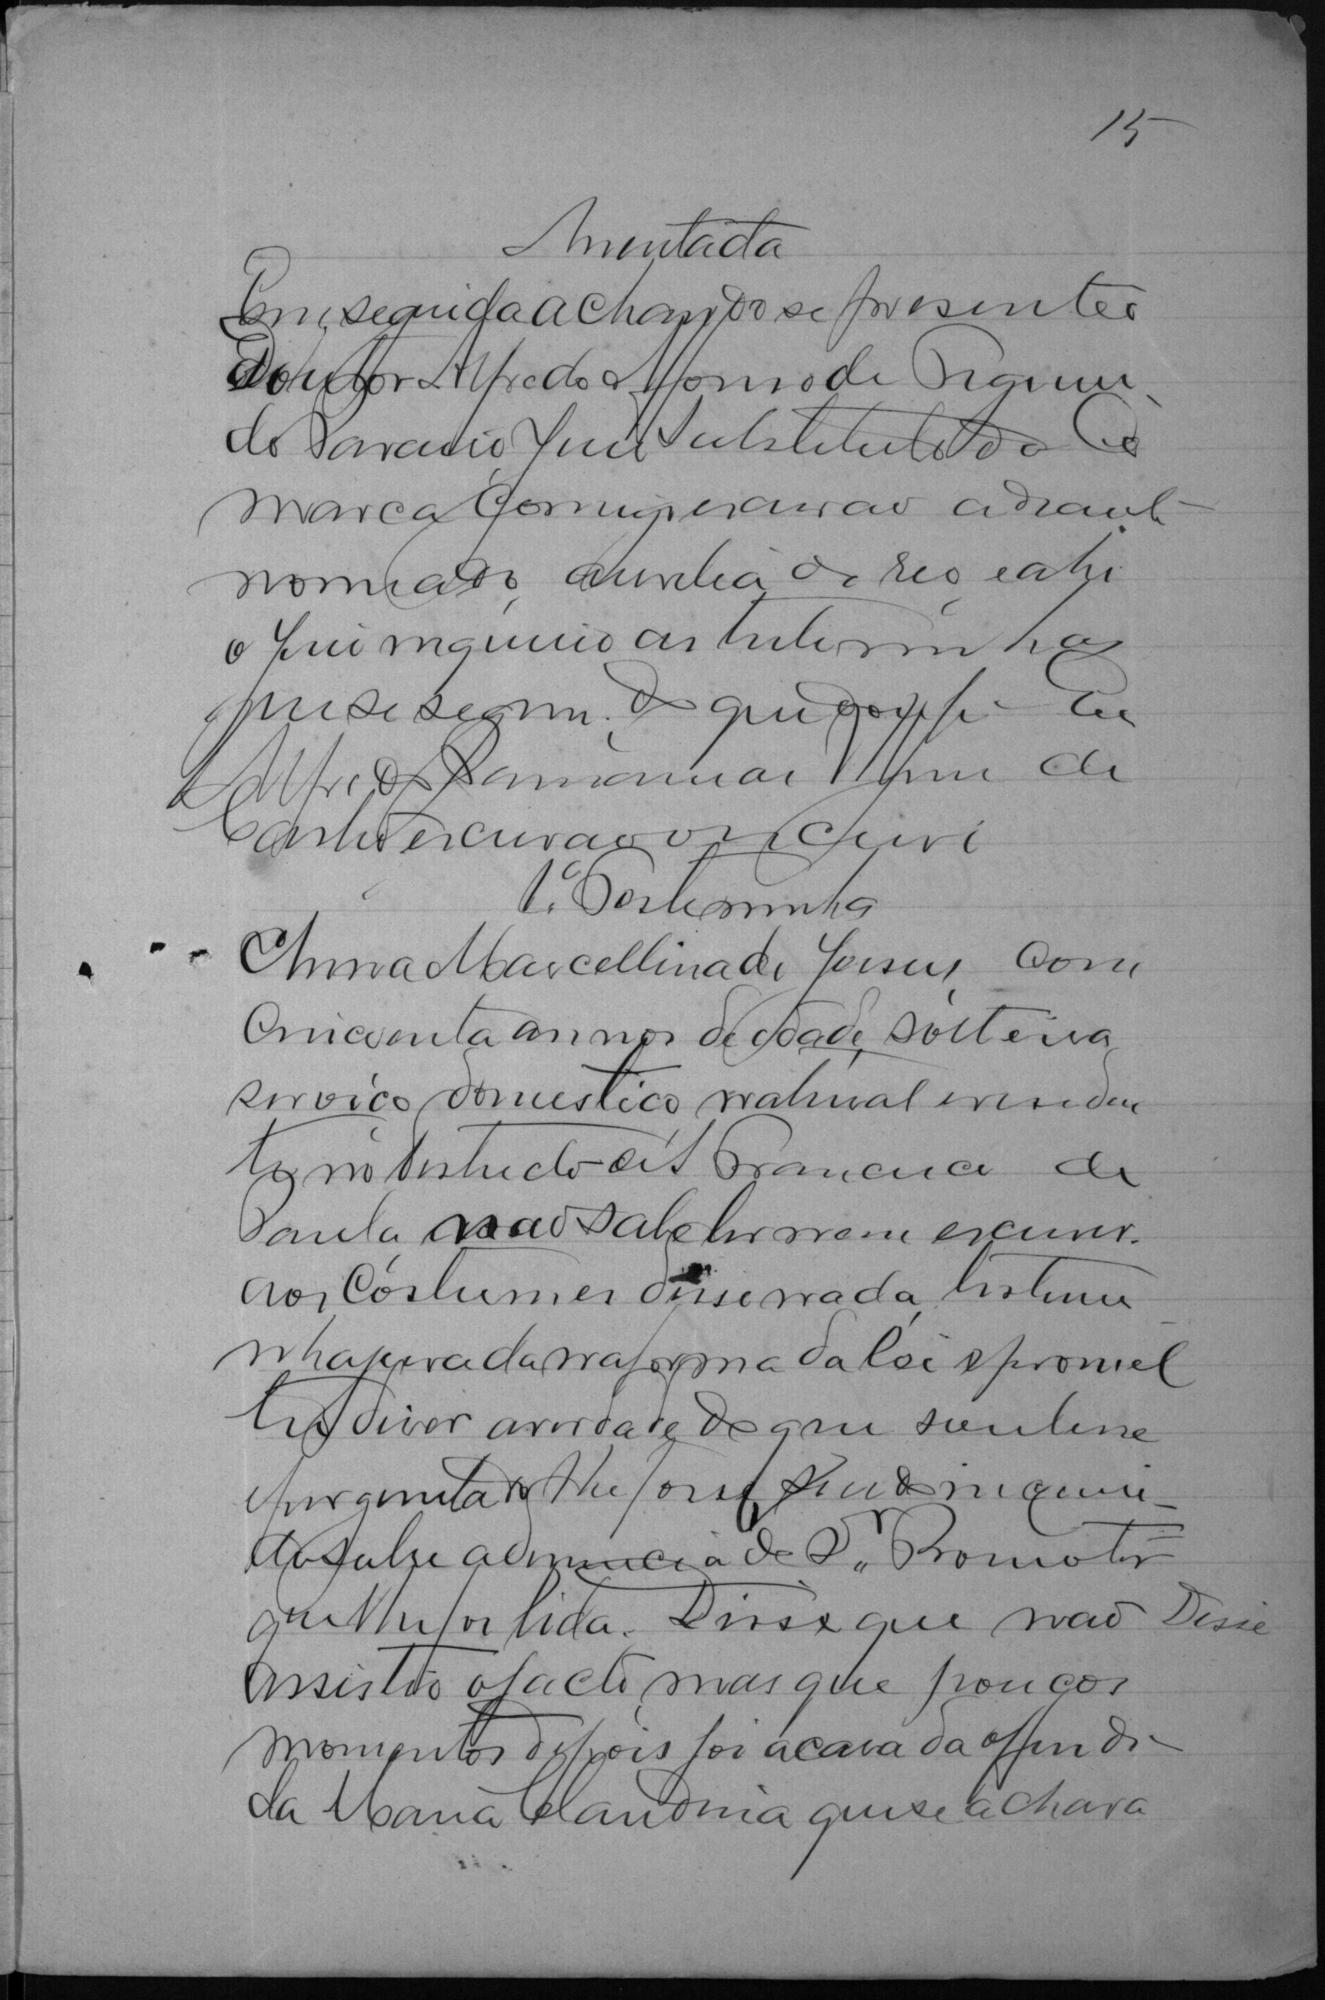 15
Assentada
Em seguida achando se presente o
Doutor Alfredo Affonso de Figuei
do Juiz Substituto da Co
marca commigo escrivão adiante
nomeado, a revelia do reo, e ahi
o Juiz inquirio as testeminhas
que se seguem. do que dou fé Eu
Alfredo de
Castro escrivão o escrevi
1ª Testeminha
Anna Marcellina de Jesus, com
cincoenta annos de edade, solteira
serviço domestico, natural e residen
te no Districto de S Francisco de
Paula, não sabe ler nem escrever.
aos costumes disse nada, testemu
nha jurada na forma da lei e promet
teu diser a verdade do que soubesse
e perguntado lhe fosse, sendo inqueri
do sobre a denuncia do Dr. Promotor
que lhe foi lida. Disse que não Disse
assistio o facto, mas que poucos
momentos depois foi a casa da offendi
da Maria Claudina que se achava